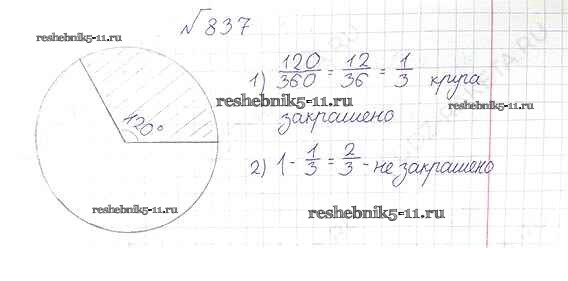 √837
reshebnik5-11.ru
1) 120/360 = 12/36 = 1/3 круга
reshebnik5-11.ru
reshebnik5-11.ru
закрашено
120°
2) 1 - 1/3 = 2/3 - не закрашено
reshebnik5-11.ru
reshebnik5-11.ru